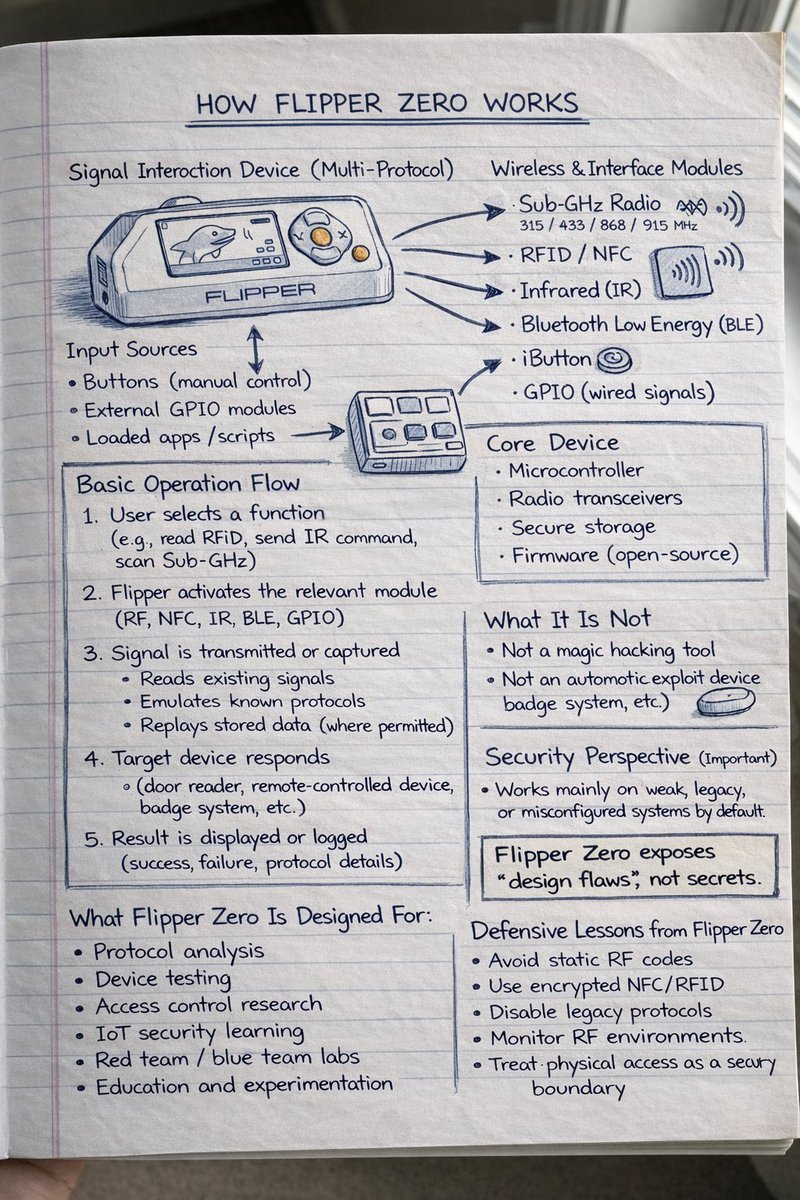 HOW FLIPPER ZERO WORKS
Signal Interoction Device (Multi-Protocol)
FLIPPER
Wireless & Interface Modules
· Sub-GHz Radio
315 / 433 / 868 / 915 MHz
· RFID / NFC
· Infrared (IR)
· Bluetooth Low Energy (BLE)
· iButton
· GPIO (wired signals)
Input Sources
• Buttons (manual control)
• External GPIO modules
• Loaded apps / scripts
Core Device
· Microcontroller
· Radio transceivers
· Secure storage
· Firmware (open-source)
Basic Operation Flow
1. User selects a function
(e.g., read RFiD, send IR command,
scan Sub-GHz)
2. Flipper activates the relevant module
(RF, NFC, IR, BLE, GPIO)
3. Signal is transmitted or captured
• Reads existing signals
• Emulates known protocols
• Replays stored data (where permitted)
4. Target device responds
◦ (door reader, remote-controlled device,
badge system, etc.)
5. Result is displayed or logged
(success, failure, protocol details)
What It Is Not
• Not a magic hacking tool
• Not an automotic exploit device
badge system, etc.)
Security Perspective (Important)
• Works mainly on weak, legacy,
or misconfigured systems by default.
Flipper Zero exposes
"design flaws", not secrets.
What Flipper Zero Is Designed For:
• Protocol analysis
• Device testing
• Access control research
• IoT security learning
• Red team / blue team labs
• Education and experimentation
Defensive Lessons from Flipper Zero
• Avoid static RF codes
• Use encrypted NFC/RFID
• Disable legacy protocols
• Monitor RF environments.
• Treat·physical access as a secury
boundary